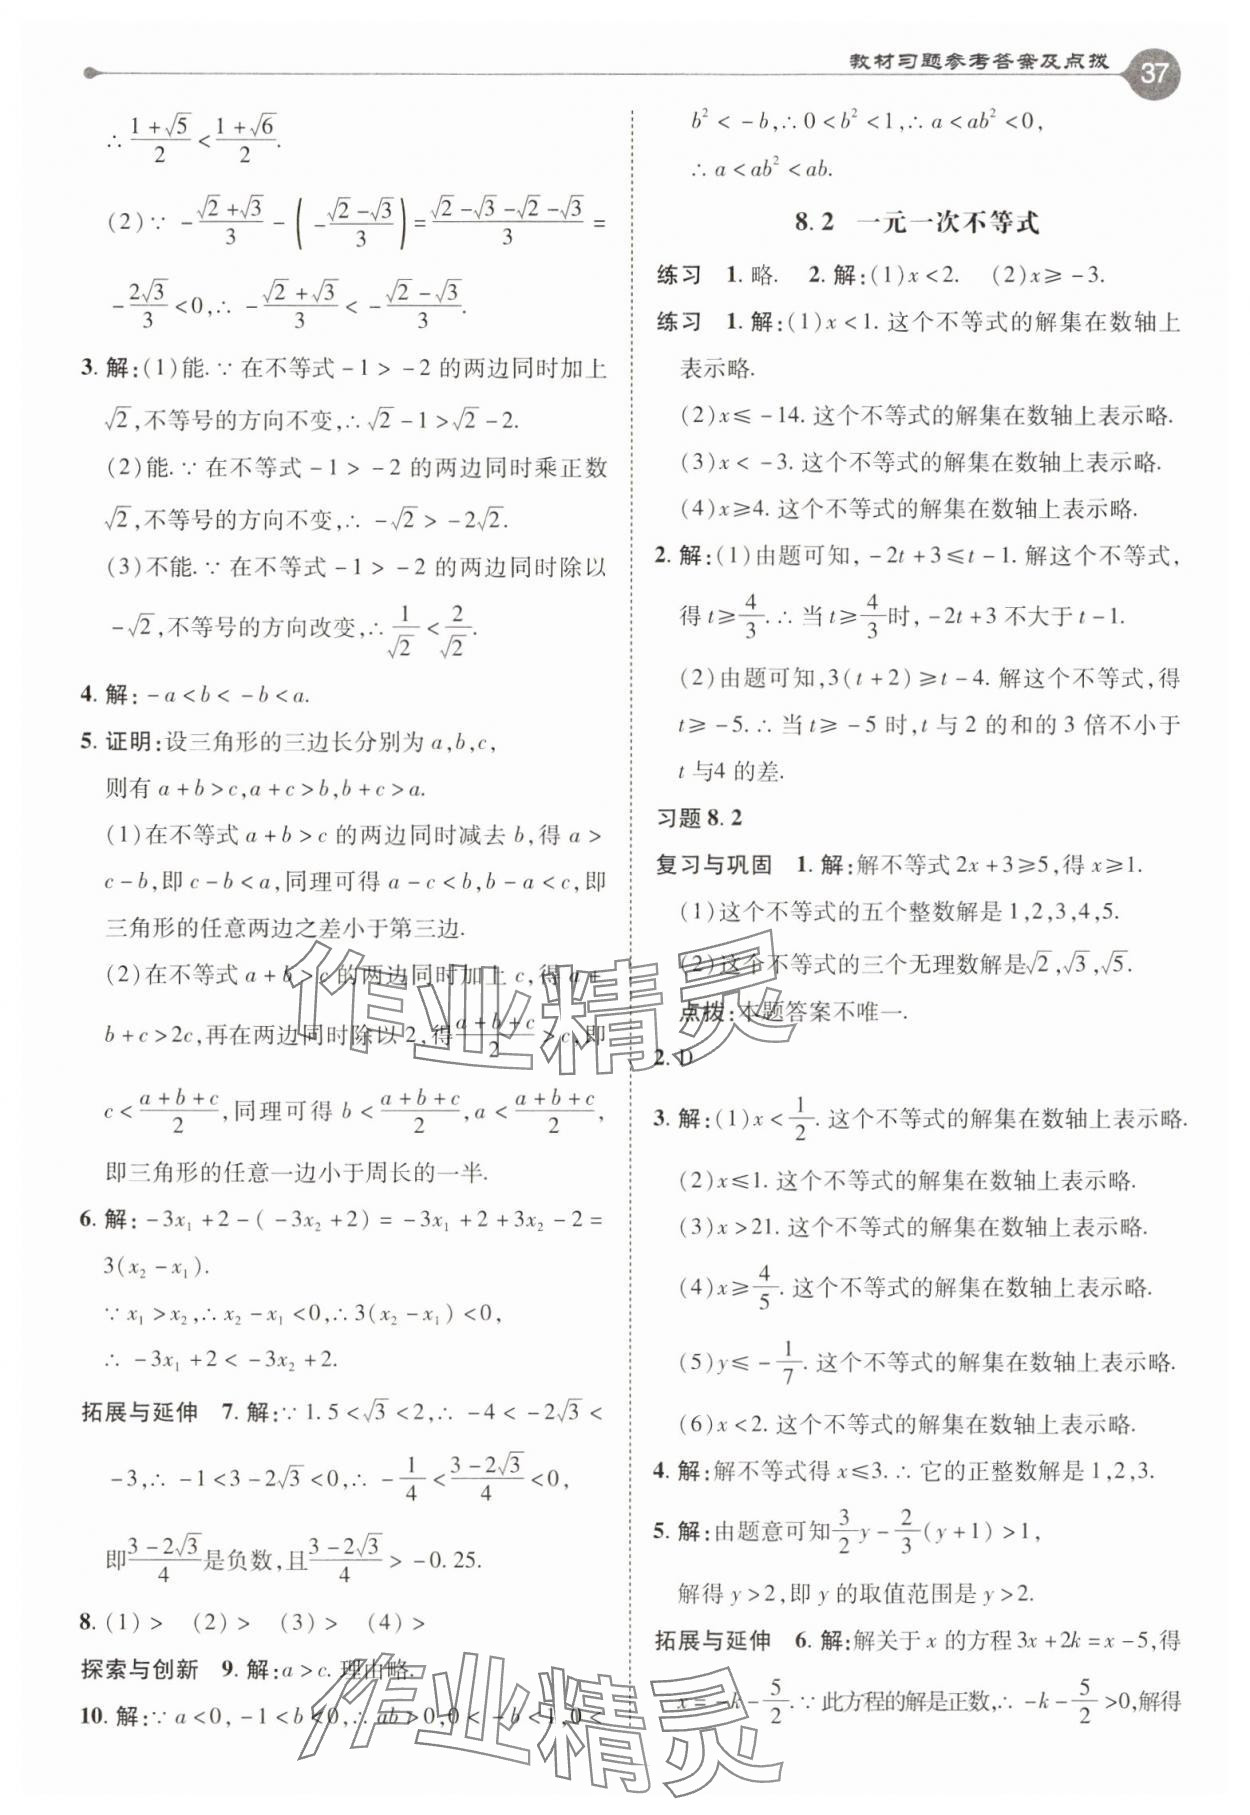 教材习题参考答案及点拨 37
∴ (1+√5)/2 < (1+√6)/2.
(2)∵ -(√2+√3)/3 - (-(√2-√3)/3) = (√2-√3-√2-√3)/3 =
-2√3/3 <0,∴ -(√2+√3)/3 < -(√2-√3)/3.
3. 解:(1)能.∵ 在不等式 -1> -2 的两边同时加上
√2,不等号的方向不变,∴ √2-1>√2-2.
(2)能.∵ 在不等式 -1> -2 的两边同时乘正数
√2,不等号的方向不变,∴ -√2> -2√2.
(3)不能.∵ 在不等式 -1> -2 的两边同时除以
-√2,不等号的方向改变,∴ 1/√2 < 2/√2.
4. 解: -a<b< -b<a.
5. 证明:设三角形的三边长分别为 a,b,c,
则有 a+b>c,a+c>b,b+c>a.
(1)在不等式 a+b>c 的两边同时减去 b,得 a>
c-b,即 c-b<a,同理可得 a-c<b,b-a<c,即
三角形的任意两边之差小于第三边.
(2)在不等式 a+b>c 的两边同时加上 c,得 a+
b+c>2c,再在两边同时除以 2,得 (a+b+c)/2 >c,即
c< (a+b+c)/2,同理可得 b< (a+b+c)/2,a< (a+b+c)/2,
即三角形的任意一边小于周长的一半.
6. 解: -3x₁+2-( -3x₂+2)= -3x₁+2+3x₂-2=
3(x₂-x₁).
∵ x₁>x₂,∴ x₂-x₁<0,∴ 3(x₂-x₁)<0,
∴ -3x₁+2< -3x₂+2.
拓展与延伸 7. 解:∵ 1.5<√3<2,∴ -4< -2√3<
-3,∴ -1<3-2√3<0,∴ -1/4 < (3-2√3)/4 <0,
即 (3-2√3)/4 是负数,且 (3-2√3)/4 > -0.25.
8. (1)> (2)> (3)> (4)>
探索与创新 9. 解:a>c.理由略.
10. 解:∵ a<0, -1<b<0,∴ ab>0,0< -b<1,0<
b²< -b,∴ 0<b²<1,∴ a<ab²<0,
∴ a<ab²<ab.
8.2 一元一次不等式
练习 1. 略. 2. 解:(1)x<2. (2)x≥ -3.
练习 1. 解:(1)x<1. 这个不等式的解集在数轴上
表示略.
(2)x≤ -14. 这个不等式的解集在数轴上表示略.
(3)x< -3. 这个不等式的解集在数轴上表示略.
(4)x≥4. 这个不等式的解集在数轴上表示略.
2. 解:(1)由题可知, -2t+3≤t-1. 解这个不等式,
得 t≥ 4/3.∴ 当 t≥ 4/3 时, -2t+3 不大于 t-1.
(2)由题可知,3(t+2)≥t-4. 解这个不等式,得
t≥ -5.∴ 当 t≥ -5 时,t 与 2 的和的 3 倍不小于
t 与4 的差.
习题 8.2
复习与巩固 1. 解:解不等式 2x+3≥5,得 x≥1.
(1)这个不等式的五个整数解是 1,2,3,4,5.
(2)这个不等式的三个无理数解是√2,√3,√5.
点拨:本题答案不唯一.
2. D
3. 解:(1)x< 1/2. 这个不等式的解集在数轴上表示略.
(2)x≤1. 这个不等式的解集在数轴上表示略.
(3)x>21. 这个不等式的解集在数轴上表示略.
(4)x≥ 4/5. 这个不等式的解集在数轴上表示略.
(5)y≤ -1/7. 这个不等式的解集在数轴上表示略.
(6)x<2. 这个不等式的解集在数轴上表示略.
4. 解:解不等式得 x≤3.∴ 它的正整数解是 1,2,3.
5. 解:由题意可知 3/2 y- 2/3 (y+1)>1,
解得 y>2,即 y 的取值范围是 y>2.
拓展与延伸 6. 解:解关于 x 的方程 3x+2k=x-5,得
x= -k- 5/2.∵ 此方程的解是正数,∴ -k- 5/2 >0,解得
作业精灵
作业精灵